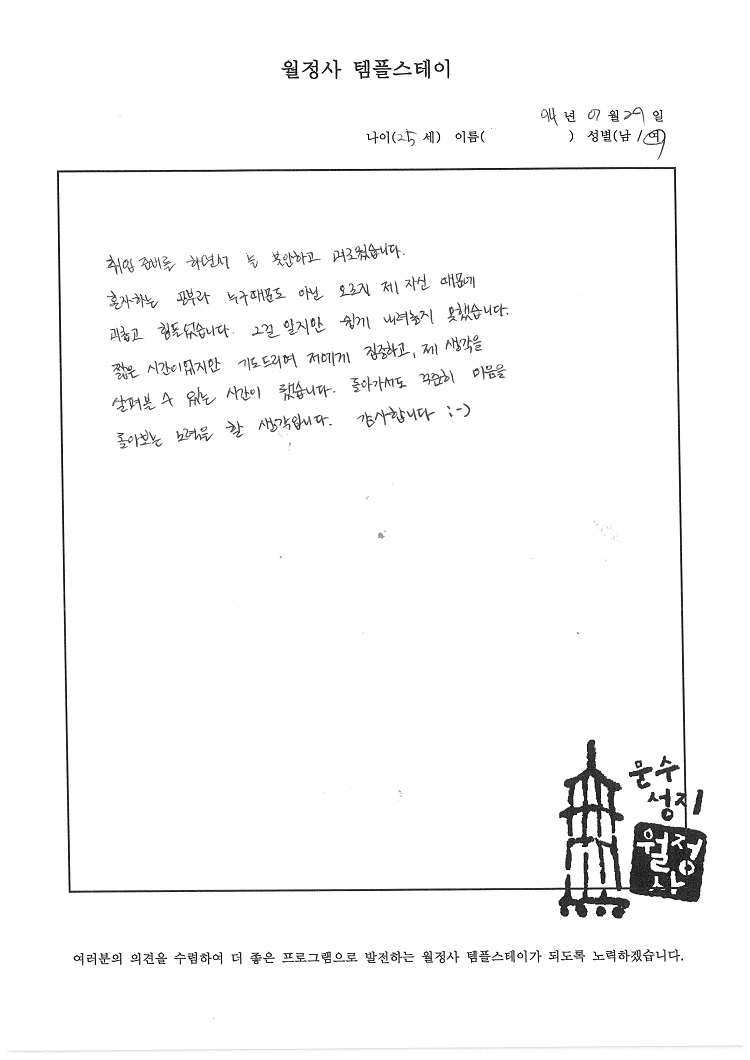 월정사 템플스테이
94 년 07 월 29 일
나이(25 세) 이름( ) 성별(남 / 여)
취업 준비를 하면서 늘 불안하고 괴로웠습니다.
혼자하는 공부라 누구때문도 아닌 오로지 제 자신 때문에
괴롭고 힘들었습니다. 그걸 알지만 쉽게 내려놓지 못했습니다.
짧은 시간이었지만 기도드리며 저에게 집중하고, 제 생각을
살펴볼 수 있는 시간이 됐습니다. 돌아가서도 꾸준히 마음을
돌아보는 노력을 할 생각입니다. 감사합니다 :-)
문수
성지
월정
사
여러분의 의견을 수렴하여 더 좋은 프로그램으로 발전하는 월정사 템플스테이가 되도록 노력하겠습니다.